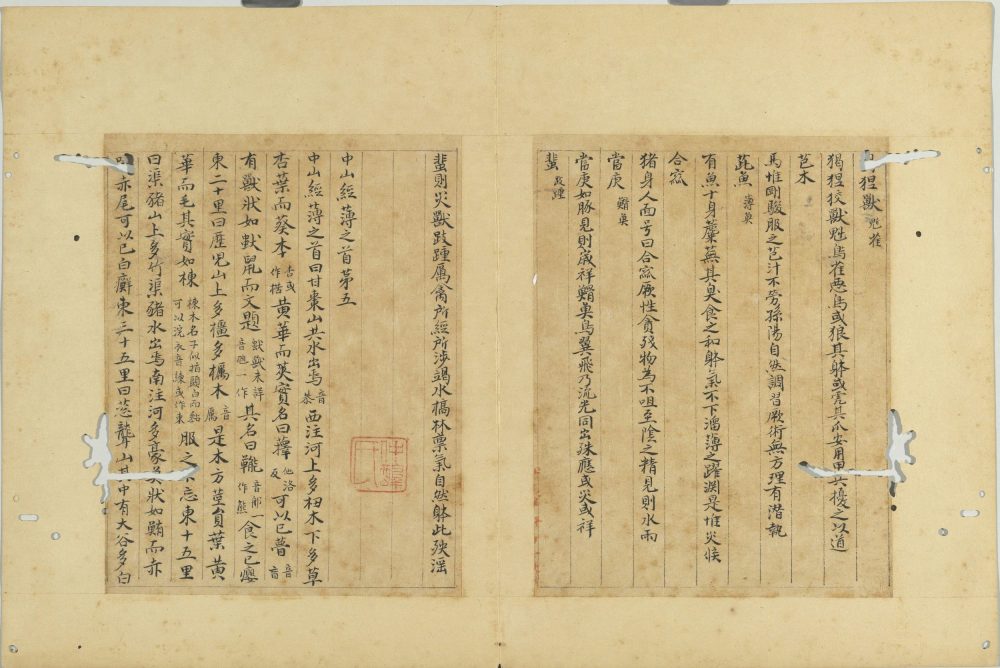 狚獸 鬿雀
猲狚狡獸鬿鳥雀惡鳥或狼其躰或虎其爪安用甲兵擾之以道
芑木
馬維剛駿服之芑汁不勞孫陽自然調習厥術無方理有潛執
茈魚 薄魚
有魚十身蘪蕪其臭食之和躰氣不下溜薄之躍淵是維災候
合窳
猪身人面号曰合窳厥性貪殘物為不咀至陰之精見則水雨
當庚 鰼魚
當庚如豚見則歲祥鰼魚鳥翼飛乃流光同出殊應或災或祥
蜚 跂踵
蜚則災獸跂踵厲禽所經所涉竭水槁林稟氣自然躰此殃淫
中山經薄之首第五
中山經薄之首曰甘棗山共水出焉音恭西注河上多杻木下多草
杏葉而葵本杏或作楛黃華而莢實名曰蘀他洛反可以已瞢音盲
有獸狀如䶈鼠而文題䶈獸未詳音虺一作其名曰㔮音那一作熊食之已癭
東二十里曰歷兒山上多橿多櫔木音厲是木方莖員葉黃
華而毛其實如棟棟木名子似指頭白而黏可以浣衣音練或作柬服之不忘東十五里
曰渠豬山上多竹渠豬水出焉南注河多豪魚狀如鮪而赤
赤尾可以已白癬東三十五里曰葱聾山其中有大谷多白